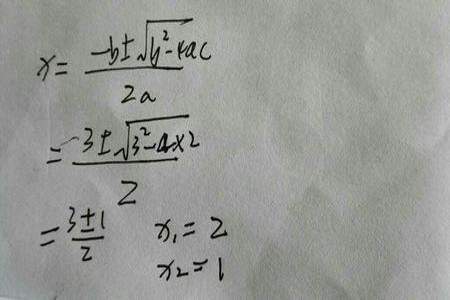 x = (-b ± √(b² - 4ac)) / 2a
= (-3 ± √(3² - 4×2)) / 2
= (3 ± 1) / 2    x₁ = 2
x₂ = 1